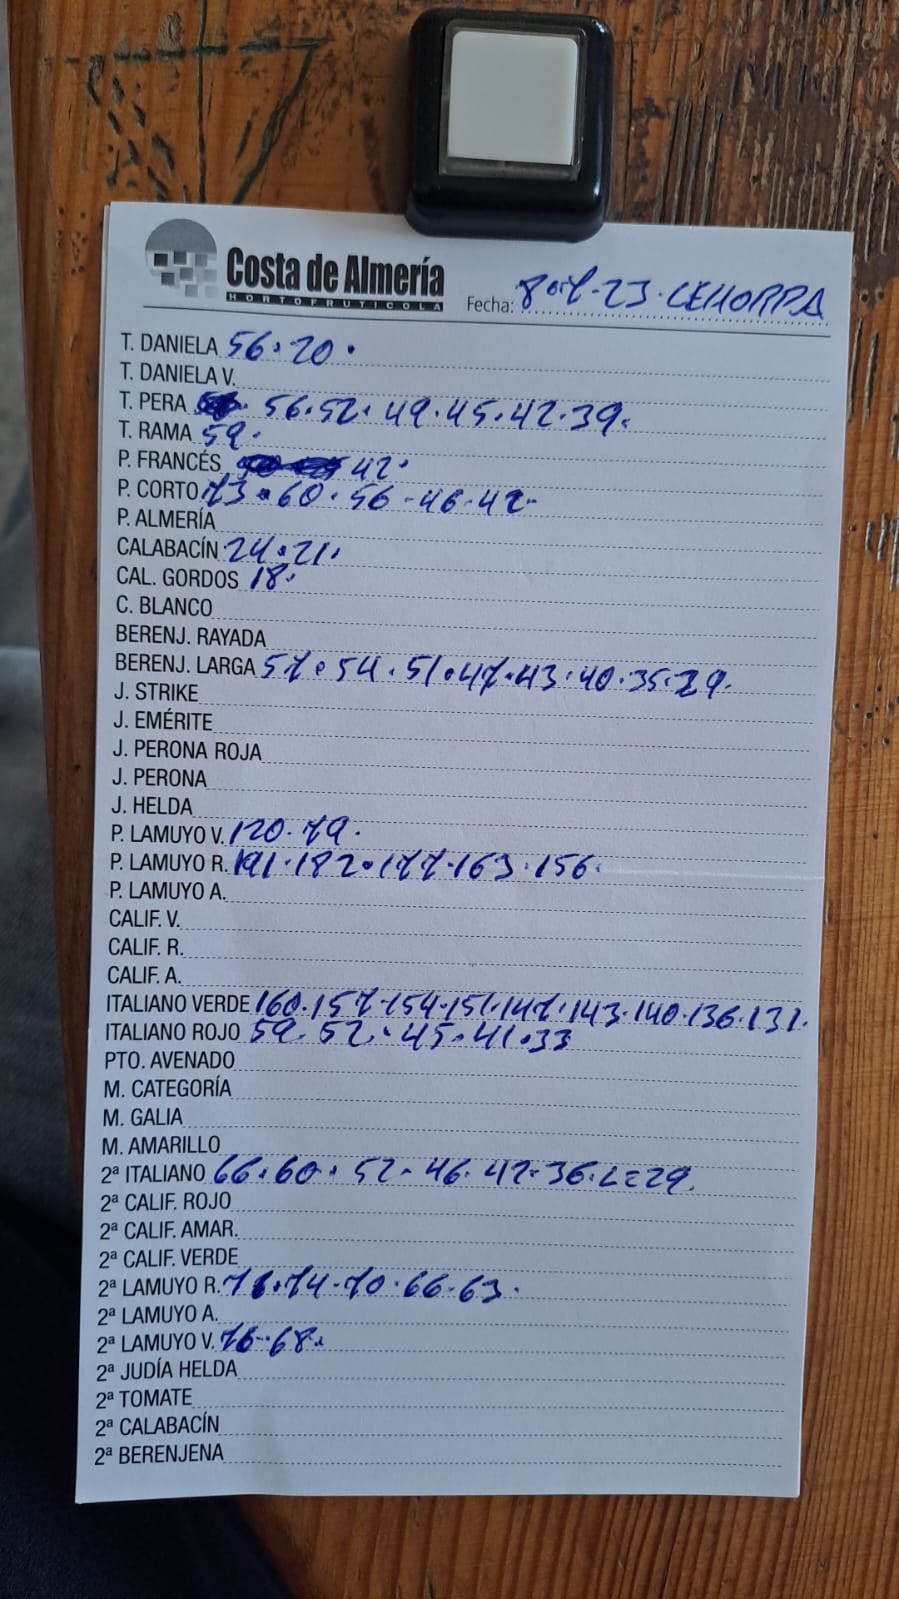 Costa de Almería
HORTOFRUTICOLA
Fecha: 8 23. CEHORPA
T. DANIELA 56. 20.
T. DANIELA V.
T. PERA 56. 52. 49. 45. 42. 39.
T. RAMA 59.
P. FRANCÉS 42.
P. CORTO 73. 60. 56 - 46. 42-
P. ALMERÍA
CALABACÍN 24. 21.
CAL. GORDOS 18.
C. BLANCO
BERENJ. RAYADA
BERENJ. LARGA 57. 54. 51. 47. 43. 40. 35. 29.
J. STRIKE
J. EMÉRITE
J. PERONA ROJA
J. PERONA
J. HELDA
P. LAMUYO V. 120. 79.
P. LAMUYO R. 191. 182. 177. 163. 156.
P. LAMUYO A.
CALIF. V.
CALIF. R.
CALIF. A.
ITALIANO VERDE 160. 157-154. 151. 147. 143. 140. 136. 131.
ITALIANO ROJO 59. 52. 45. 41. 33
PTO. AVENADO
M. CATEGORÍA
M. GALIA
M. AMARILLO
2ª ITALIANO 66. 60. 52- 46. 42- 36. L=29.
2ª CALIF. ROJO
2ª CALIF. AMAR.
2ª CALIF. VERDE
2ª LAMUYO R. 74. 70. 66. 63.
2ª LAMUYO A.
2ª LAMUYO V. 76. 68.
2ª JUDÍA HELDA
2ª TOMATE
2ª CALABACÍN
2ª BERENJENA